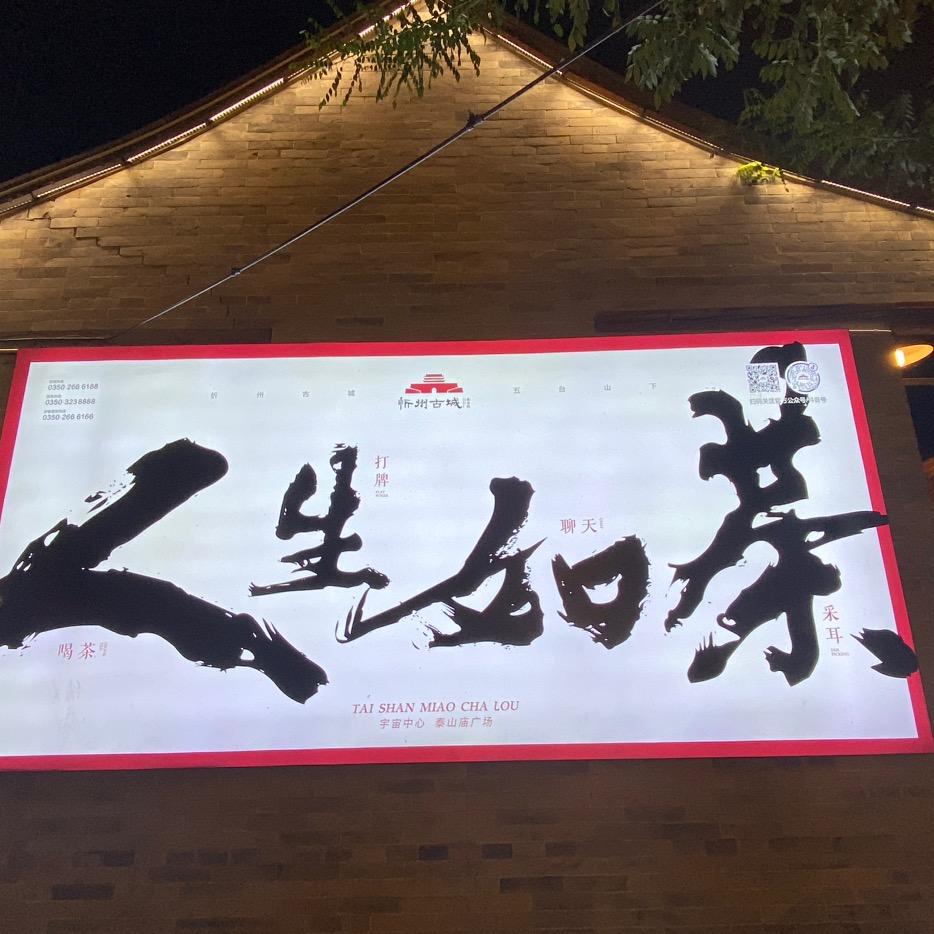 0350 266 6188
0350-323 8888
0350-266 6166
忻州古城
忻州古城
五台山下
扫码关注官方公众号/抖音号
人生如茶
打牌
聊天
采耳
喝茶
TAI SHAN MIAO CHA LOU
宇宙中心 泰山庙广场